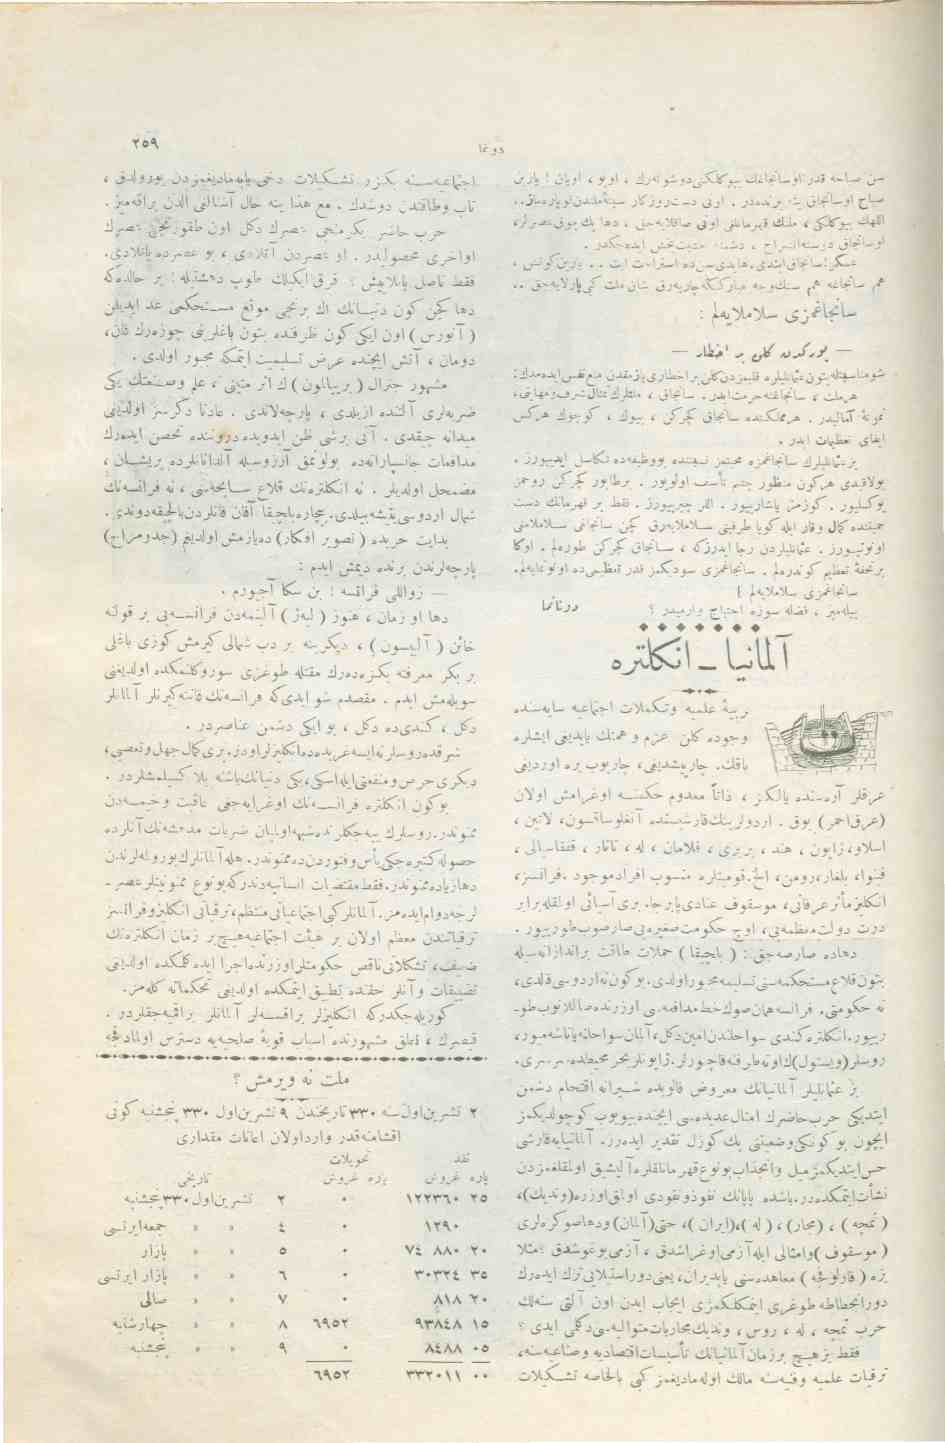 ٢٥٩
دونما
سن صباحه قدر او سانجاغك بیوكلكنی دوشونه‌رك ، اویو ، اویان ! یارین
صباح اوسانجاق ینه یرنده‌در . اونی دست روزكار سینهٔ ملتدن اوپاره‌ماز..
اللهك بیوكلكی ، ملتك قهرمانلغی اونی صاقلایه‌جق ، دها پك چوق عصرلر،
اوسانجاق دوسته انشراح ، دشمنه خشیت بخش ایده‌جكدر .
عسكر! سانجاق ایندی. هایدی سن ده استراحت ایت . . یارین كونش ،
هم سانجاغه هم سنك وجه مباركه چارپه‌رق شان ملت كبی پارلایه‌جق ..
سانجاغمزی سلاملایه‌لم :
— یوركدن كلن بر اخطار —
شو مناسبتله بتون عثمانلیلره قلبمزدن كلن بر اخطاری یازمقدن منع نفس ایده‌مدك:
هر ملت ، سانجاغنه حرمت ایدر. سانجاق ، ملتلرك تمثال شرف ومهابتی،
نمونهٔ آمالیدر . هر مملكتده سانجاق كچركن ، بیوك ، كوچوك هركس
ایفای تعظیمات ایدر .
بز عثمانلیلرك سانجاغمزه محترمز نسبتنده بو وظیفه‌ده تكاسل ایدییورز .
بولاقیدی هركون منظور چشم تأسف اولویور . بر طابور كچركن روحمز
یوكسلیور . كوزمز یاشارییور . اللر چیرپییورز . فقط بر قهرمانك دست
حمیتنده كمال وقار ایله كویا طرفینی سلاملایه‌رق كچن سانجاغی سلاملامغی
اونوتییورز . عثمانلیلردن رجا ایدرزكه ، سانجاق كچركن طوره‌لم . اوكا
بر تحفهٔ تعظیم كوندره‌لم . سانجاغمزی سودیكمز قدر تعظیمی‌ده اونوتمایه‌لم.
سانجاغمزی سلاملایه‌لم !
بیله‌میز ، فضله سوزه احتیاج وارمیدر ؟
دونانما
آلمانیا ـ انكلتره
تربیهٔ علمیه وتكملات اجتماعیه سایه‌سنده
وجوده كلن عزم و همتك یاپدیغی ایشلره
باقك. چارپیشدیغی، چارپوب یره اوردیغی
عرقلر آره‌سنده یالكز ، ذاتاً معدوم حكمنه اوغرامش اولان
(عرق احمر) یوق . اردولرینك قارشیسنده آنغلوساقسون، لاتین ،
اسلاو، ژاپون ، هند ، بربری ، فلامان ، له ، تاتار ، قفقاسیالی ،
فینوا، بلغار، رومن، الخ. قومیتلره منسوب افراد موجود . فرانسز،
انكلیز مآثر عرفانی، موسقوف عنادی پابرجا. بری آسیائی اولمقله برابر
درت دولت معظمه‌یی، اوچ حكومت صغیره‌یی صارصوب طورییور .
دهاده صارصه‌جق : ( بلچیقا ) حملات طاقت براندازانه‌سیله
بتون قلاع مستحكمه‌سنی تسلیمه مجبور اولدی. بوكون نه اردوسی قالدی،
نه حكومتی. فرانسه همان صوك خط مدافعه‌سی اوزرنده صاللانوب طو-
رییور. انكلتره كندی سواحلندن امین دكل، آلمان سواحلنه یاناشه‌میور،
روسلر (ویستول) ك اوته طرفنه قاچیورلر. ژاپونلر بحر محیطده سرسری.
بز عثمانلیلر آلمانیانك معروض قالوبده شیرانه اقتحام دشمن
ایتدیكی حرب حاضرك امثال عدیده‌سی ایچنده بیویوب كوچولدیكمز
ایچون بوكونكی وضعیتنی پك كوزل تقدیر ایده‌رز. آلمانیایه قارشی
حس ایتدیكمز میل وانجذاب بونوع قهرمانلقلره آلیشیق اولمقلغمزدن
نشأت ایتمكده‌در. باشده پاپانك نفوذ ونقودی اولمق اوزره (وندیك)،
( نمچه ) ، (مجار) ، ( له )، (ایران )، حتی (آلمان) ودها صوكره‌لری
( موسقوف ) وامثالی ایله آزمی اوغراشدق ، آزمی بوغوشدق ؟ مثلا
بزه ( قارلوفچه ) معاهده‌سنی یاپدیران، یعنی دور استیلایی ترك ایده‌رك
دور انحطاطه طوغری ایتمكلكمزی ایجاب ایدن اون آلتی سنه‌لك
حرب نمچه ، له ، روس ، وندیك محاربات متوالیه‌سی دكلمی ایدی ؟
فقط بز هیچ بر زمان آلمانیانك تأسیسات اقتصادیه وصناعیه‌سنه،
ترقیات علمیه وفنیه‌سنه مالك اوله‌مادیغمز كبی بالخاصه تشكیلات
اجتماعیه‌سنه بكزر تشكیلات دخی یاپه‌مادیغمزدن یورولدق ،
تاب وطاقتدن دوشدك . مع هذا ینه حال آشنالغی الدن براقمه‌یز .
حرب حاضر یكرمنجی عصرك دكل اون طقوزنجی عصرك
اواخری محصولیدر . او عصردن آتلادی ، بو عصرده پاتلادی.
فقط ناصل پاتلاییش ؟ قرق ایكیلك طوپ دهشتیله ! بر حالده‌كه
دها كچن كون دنیانك اك برنجی موقع مستحكمی عد ایدیلن
( آنورس ) اون ایكی كون ظرفنده بتون باغلرینی چوزه‌رك قان،
دومان ، آتش ایچنده عرض تسلیمیت ایتمكه مجبور اولدی .
مشهور جنرال ( بریالمون ) ك اثر متینی ، علم وصنعتك یكی
ضربه‌لری آلتنده ازیلدی ، پارچه‌لاندی . عادتا دكرسز اولدیغی
میدانه چیقدی . آنی برشی ظن ایدوبده دروننده تحصن ایده‌رك
مدافعات جانسپارانه‌ده بولونمق آرزوسیله آلدانانلرده پریشان ،
مضمحل اولدیلر . نه انكلتره‌نك قلاع سابحه‌سی ، نه فرانسه‌نك
شمال اردوسی یتیشه‌بیلدی. بیچاره بلچیقا آقان قانلردن بالچیغه دوندی.
بدایت حربده ( تصویر افكار ) ده یازمش اولدیغم (جدومزاج)
پارچه‌لرندن برنده دیمش ایدم :
— زواللی فرانسه ! بن سكا آجیورم .
دها او زمان ، هنوز ( لیه‌ژ ) آلینمه‌دن فرانسه‌یی بر قولنه
خائن ( آلبیون ) ، دیكرینه بر دب شمالی كیرمش كوزی باغلی
بر بكر معرفته بكزه‌ده‌رك مقتله طوغری سوروكلنمكده اولدیغنی
سویله‌مش ایدم . مقصدم شو ایدی‌كه فرانسه‌نك قاننه كیرنلر آلمانلر
دكل ، كندی‌ده دكل ، بو ایكی دشمن عناصردر .
شرقده روسلر نه ایسه غربده‌ده انكلیزلر اودر. بری كمال جهل وتعصبی،
دیكری حرص ومنفعتی ایله اسكی، یكی دنیانك باشنه بلا كسیلمشلردر .
بوكون انكلتره فرانسه‌نك اوغرایه‌جغی عاقبت وخیمه‌دن
ممنوندر. روسلرك ییه‌جكلرنده شبهه اولمایان ضربات مدهشه‌نك آنلرده
حصوله كتیره‌جكی یأس وفتوردن‌ده ممنوندر. هله آلمانلرك یورولمه‌لرندن
دها زیاده ممنوندر. فقط مقتضیات انسانیه‌دندركه بونوع ممنونیتلر عصر-
لرجه دوام ایده‌مز. آلمانلر كبی اجتماعیاتی منتظم، ترقیاتی انكلیز وفرانسز
ترقیاتندن معظم اولان بر هیئت اجتماعیه هیچ بر زمان انكلتره‌نك
ضعیف، تشكلاتی ناقص حكومتلر اوزرنده اجرا ایده‌كلمكده اولدیغی
تضییقات و آنلر حقنده تطبیق ایتمكده اولدیغی تحكماته كله‌مز.
كوریله‌جكدركه انكلیزلر براقسه‌لر آلمانلر براقمیه‌جقلردر .
قیصرك ، ذیلتی مشهورنده اسباب قویهٔ صلحیه‌یه دسترس اولمادقجه
ملت نه ویرمش ؟
٢ تشرین اول سنه ٣٣٠ تاریخندن ٩ تشرین اول ٣٣٠ پنجشنبه كونی
اقشامنه‌قدر وارد اولان اعانات مقداری
نقد تحویلات
پاره غروش پاره غروش تاریخی
٢٥ ١٢٢٣٦٠ ٠ ٢ تشرین اول ٣٣٠ پنجشنبه
١٢٩٠ ٠ ٤ » » جمعه ایرتسی
٢٠ ٧٤٨٨٠ ٠ ٥ » » پازار
٣٥ ٣٠٣٢٤ ٠ ٦ » » پازار ایرتسی
٢٠ ٨١٨ ٠ ٧ » » صالی
١٥ ٩٣٨٤٨ ٦٩٥٢ ٨ » » چهارشنبه
٠٥ ٨٤٨٨ ٠ ٩ » » پنجشنبه
٠٠ ٣٣٢٠١١ ٦٩٥٢